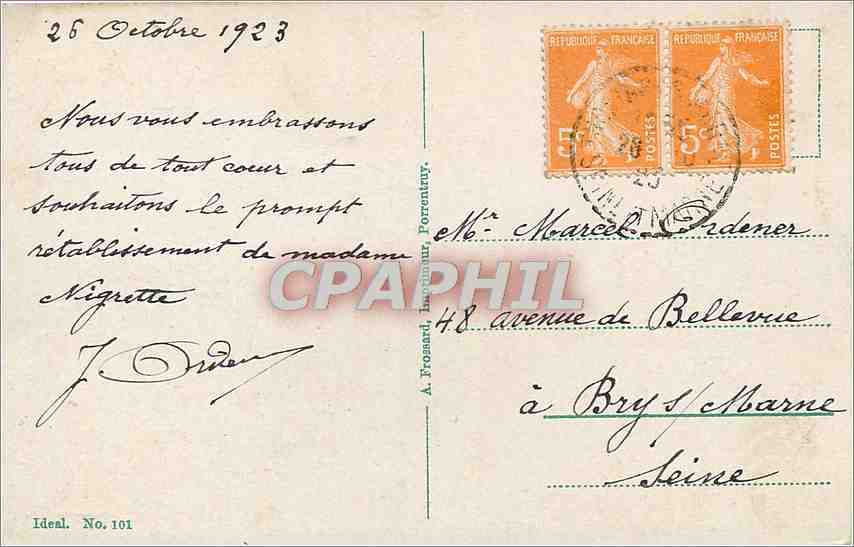 26 Octobre 1923
Nous vous embrassons
tous de tout coeur et
souhaitons le prompt
rétablissement de madame
Nigrette
J. Ordener
Ideal. No. 101
A. Frossard, Imprimeur, Porrentruy.
REPUBLIQUE FRANÇAISE
5c
POSTES
REPUBLIQUE FRANÇAISE
5c
POSTES
Mr Marcel Ordener
48 avenue de Bellevue
à Bry s/Marne
Seine
CPAPHIL